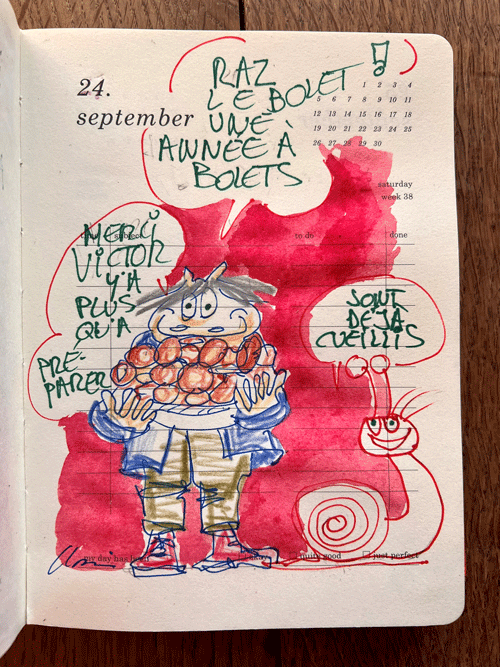 24.
september
RAZ
LE BOLET !
UNE
ANNÉE À
BOLETS
1 2 3 4
5 6 7 8 9 10 11
12 13 14 15 16 17 18
19 20 21 22 23 24 25
26 27 28 29 30
saturday
week 38
subject
to do
done
MERCI
VICTOR
Y'A
PLUS
QU'A
PRÉ-
PARER
SONT
DÉJÀ
CUEILLIS
my day has been
good
just perfect